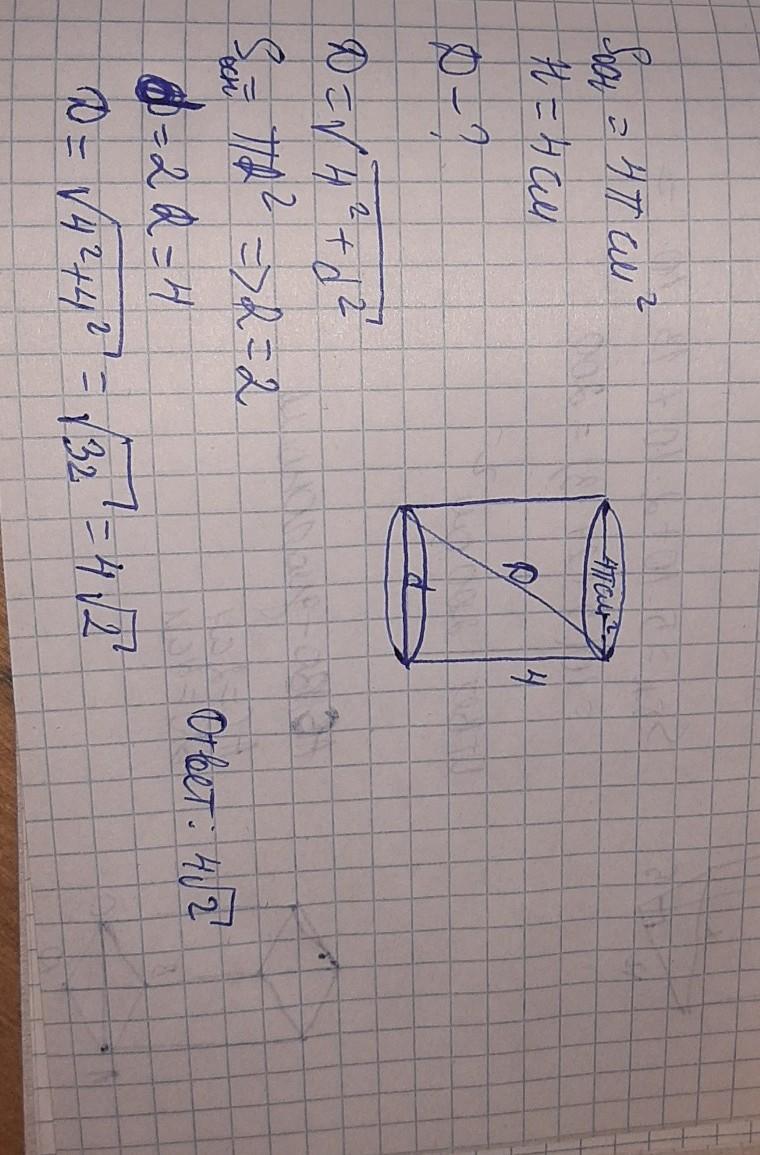 Sосн = 4π см²
H = 4 см
D - ?
D = √4² + d²
Sосн = πR² => R = 2
d = 2R = 4
D = √4² + 4² = √32 = 4√2
4π см²
D
4
d
Ответ: 4√2